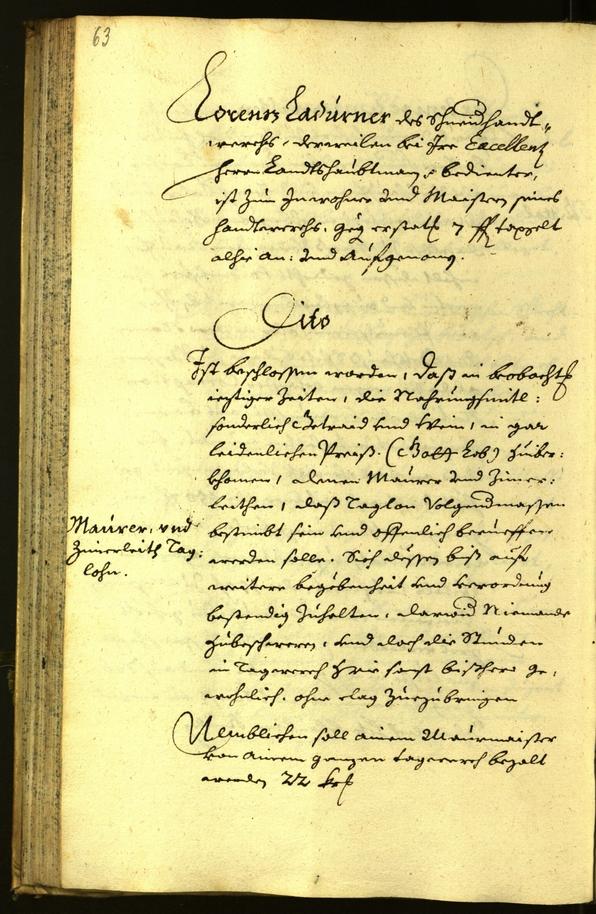 63
Lorenz Ladurner des Schneidhandt„
werchs, derweilen bei Ire Excellenz
herrn Landtshaubtman, bedienter,
ist zum Inwohner und Maister seines
handtwerchs, gegen erstattung 7 fl. taxgelt
alhie an: und Aufgenomen.
Dito
Ist beschlossen worden, daß in beobachtung
ieziger Zeiten, die Nahrungsmitl:
sonderlich Getraid und Wein, in gar
leidenlichen Preiß. (Gott Lob) hinüber:
khomen, denen Maurer und Zimer:
leithen, daß Taglon Volgendmassen
bestimbt sein und offentlich beruoffen
werden solle. Sich dessen biß auf
weitere begebenheit und verordnung
bestendig Zuhalten, darwid Niemande
Zubeschweren, und doch die Stunden
im Tagwerch wie sonst bisthero ge:
wohnlich, ohne clag Zuezubringen
Maurer, und
Zimerleith Tag:
lohn.
Nemblichen soll ainem Maurmaister
von ainem ganzen tagwerch bezalt
werden 22 kr